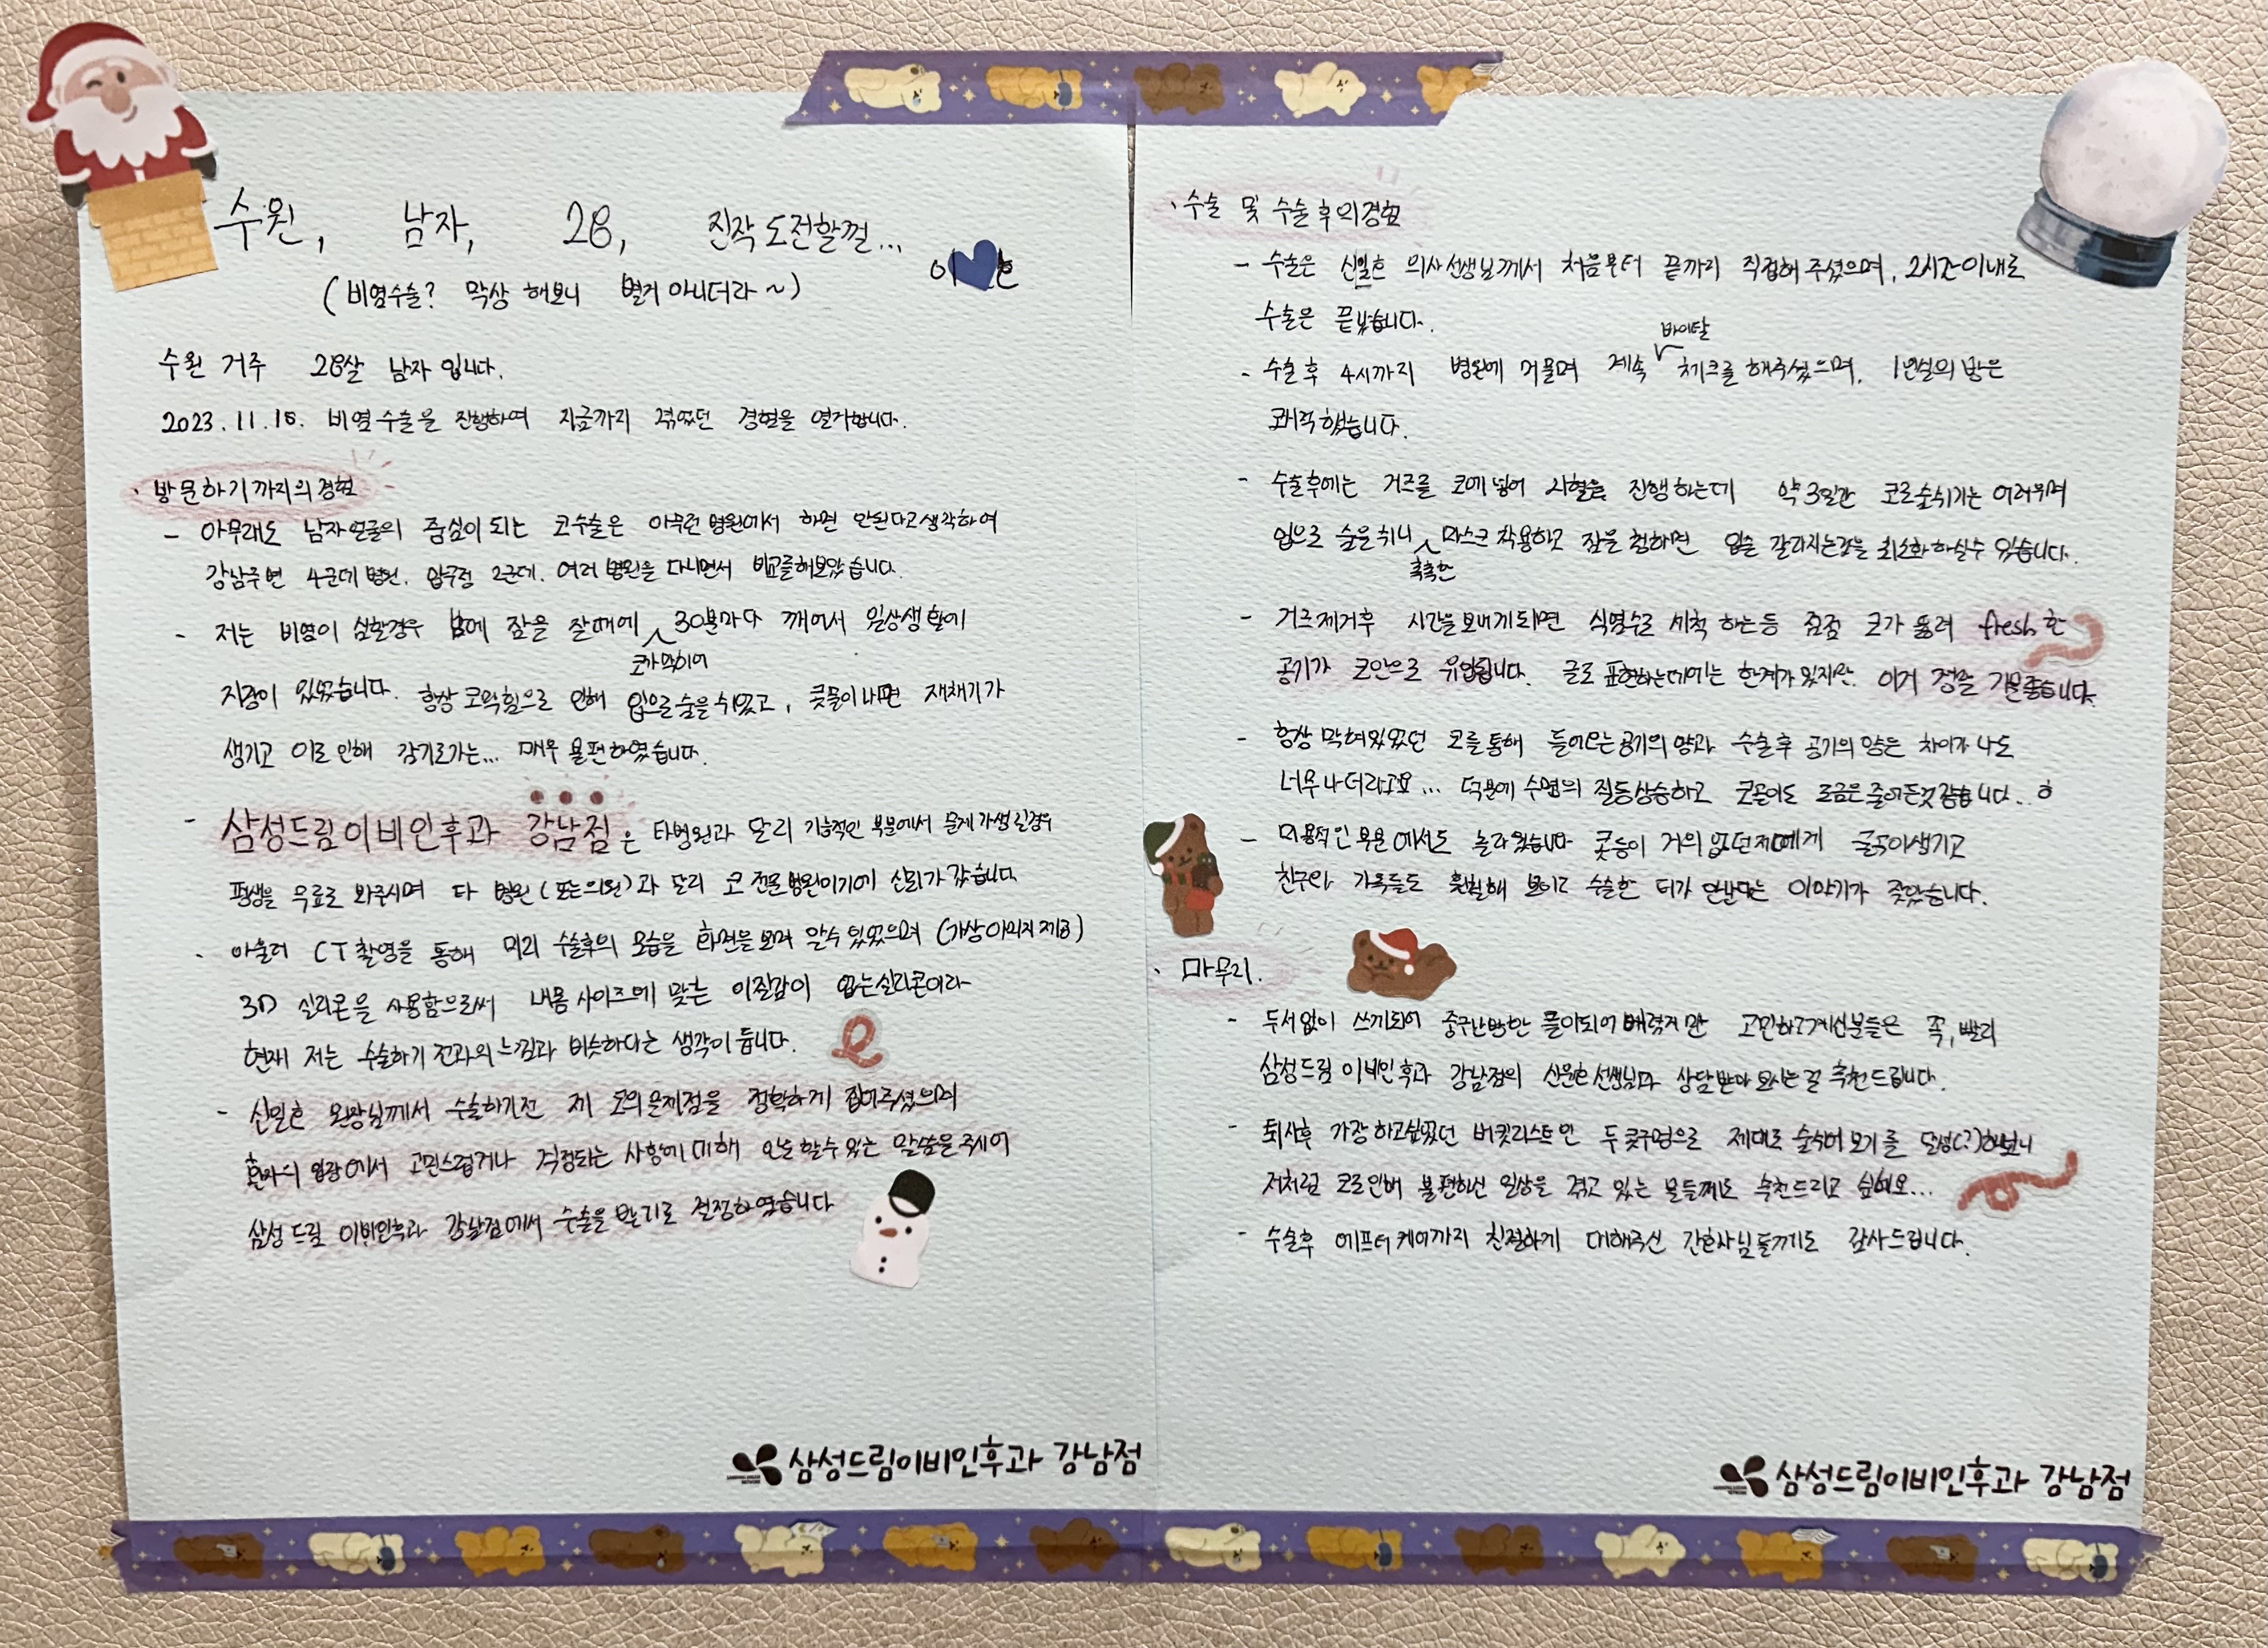 수원, 남자, 28, 진작 도전할껄...
(비염수술? 막상 해보니 별게 아니더라~)
수원 거주 28살 남자 입니다.
2023.11.18. 비염수술을 진행하여 지금까지 겪었던 경험을 열거합니다.
· 방문하기까지의 경험
- 아무래도 남자얼굴의 중심이 되는 코수술은 아무런 병원에서 하면 안된다고 생각하여
강남주변 4군데 병원, 압구정 2군데, 여러 병원을 다니면서 비교를해보았습니다.
- 저는 비염이 심한경우 밤에 잠을 잘때에 코가막히어 30분마다 깨어서 일상생활에
지장이 있었습니다. 항상 코막힘으로 인해 입으로 숨을 쉬었고, 콧물이 나면 재채기가
생기고 이로 인해 감기로가는... 매우 불편하였습니다.
- 삼성드림이비인후과 강남점은 타병원과 달리 기능적인 부분에서 문제가생길경우
평생을 무료로 봐주시며 타 병원(또는의원)과 달리 코 전문병원이기에 신뢰가 갔습니다.
- 아울러 CT 촬영을 통해 미리 수술후의 모습을 화면을 보며 알수 있었으며 (가상이미지 제공)
3D 실리콘을 사용함으로써 내몸 사이즈에 맞는 이질감이 없는실리콘이라
현재 저는 수술하기 전과의 느낌과 비슷하다는 생각이 듭니다.
- 신일호 원장님께서 수술하기전 제 코의문제점을 정확하게 집어주셨으며
환자의 입장에서 고민스럽거나 걱정되는 사항에 대해 안심할수있는 말씀을 주시어
삼성드림 이비인후과 강남점에서 수술을 받기로 결정하였습니다
삼성드림이비인후과 강남점
· 수술 및 수술후의경험
- 수술은 신일호 의사선생님께서 처음부터 끝까지 직접해 주셨으며, 2시간이내로
수술은 끝났습니다.
- 수술후 4시까지 병원에 머물며 계속 바이탈 체크를 해주셨으며, 1인실의 방은
쾌적했습니다.
- 수술후에는 거즈를 코에 넣어 지혈을 진행하는데 약3일간 코로숨쉬기는 어려우며
입으로 숨을쉬니 촉촉한 마스크 착용하고 잠을 청하면 입술 갈라지는것을 최소화하실수 있습니다.
- 거즈제거후 시간을보내게되면 식염수로 세척하는등 점점 코가 뚫려 fresh한
공기가 코안으로 유입됩니다. 글로 표현하는데에는 한계가있지만, 이거 정말 기분좋습니다.
- 항상 막혀있었던 코를통해 들어오는공기의 양과 수술후 공기의 양은 차이가 나도
너무나더라고요... 덕분에 수면의 질도상승하고 코골이도 조금은줄어든것같습니다..ㅎ
- 미용적인 부분에서도 놀라웠습니다 콧등이 거의 없던저에게 굴곡이생기고
친구와 가족들도 훤칠해 보이고 수술한 티가 안난다는 이야기가 잦았습니다.
· 마무리.
- 두서없이 쓰게되어 중구난방한 풀이되어버렸지만 고민하고계신분들은 꼭, 빨리
삼성드림 이비인후과 강남점의 신일호선생님과 상담받아 보시는걸 추천드립니다.
- 퇴사후 가장 하고싶었던 버킷리스트인 두콧구멍으로 제대로 숨쉬어보기를 달성(?)해보니
저처럼 코로인해 불편하신 일상을 겪고 있는 분들께도 추천드리고 싶어요...
- 수술후 에프터케어까지 친절하게 대해주신 간호사님들께도 감사드립니다.
삼성드림이비인후과 강남점